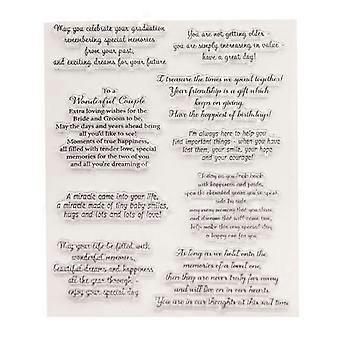 May you celebrate your graduation
remembering special memories
from your past,
and exciting dreams for your future
You are not getting older
you are simply increasing in value -
have a great day!
To a
Wonderful Couple
Extra loving wishes for the
Bride and Groom to be,
May the days and years ahead bring
all you'd like to see!
Moments of true happiness,
all filled with tender love, special
memories for the two of you
and all you're dreaming of
I treasure the times we spend together!
Your friendship is a gift which
keeps on giving.
Have the happiest of birthdays!
I'm always here to help you
find important things - when you have
lost them, your smile, your hope
and your courage!
A miracle came into your life,
a miracle made of tiny baby smiles,
hugs and lots and lots of love!
Today as you look back
with happiness and pride,
upon the cherished years you've spent
side by side
may every memory that you share
and dreams that will come true,
help make this very special day
a happy one for you
May your life be filled with
wonderful memories,
beautiful dreams and happiness
all the year through -
enjoy your special day
As long as we hold onto
the memories of a loved one,
then they are never truly far away
and will live on in our hearts.
You are in our thoughts at this sad time